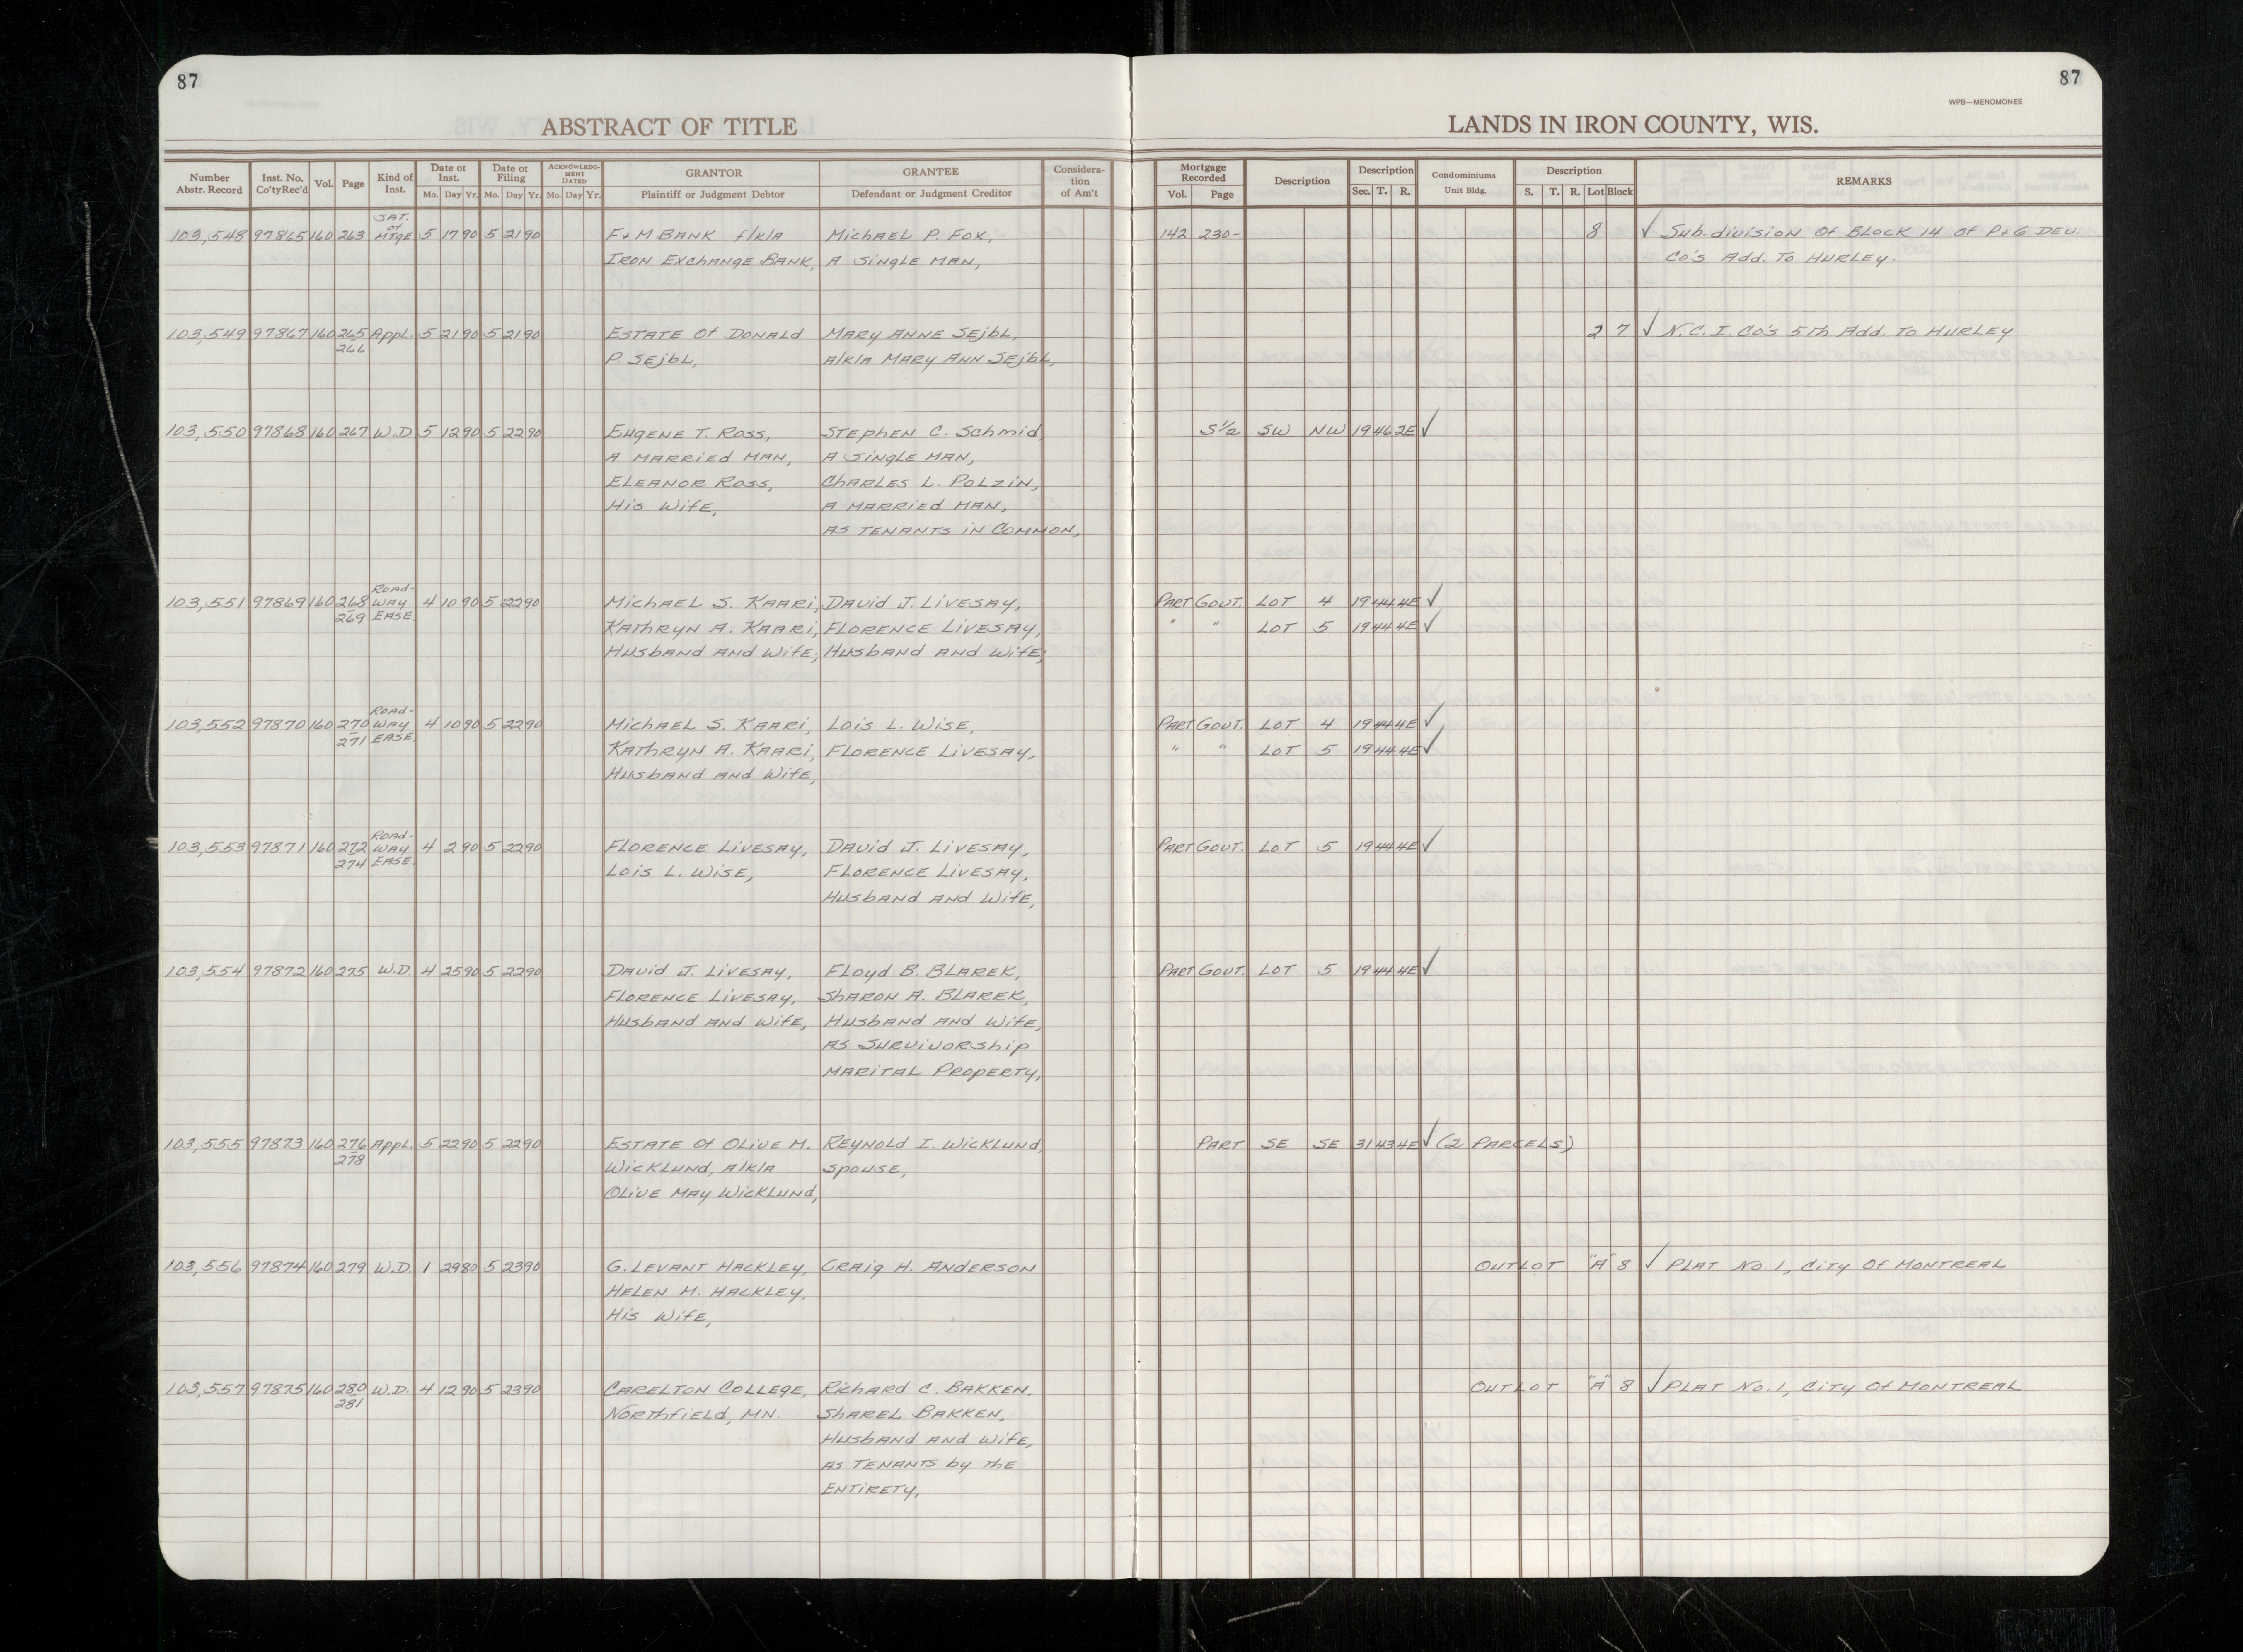 87
87
WPB—MENOMONEE
ABSTRACT OF TITLE
LANDS IN IRON COUNTY, WIS.
Number Abstr. Record | Inst. No. Co'ty Rec'd | Vol. | Page | Kind of Inst. | Date of Inst. Mo. Day Yr. | Date of Filing Mo. Day Yr. | ACKNOWLEDGMENT DATED Mo. Day Yr. | GRANTOR Plaintiff or Judgment Debtor | GRANTEE Defendant or Judgment Creditor | Consideration of Am't | Mortgage Recorded Vol. Page | Description | Description Sec. T. R. | Condominiums Unit Bldg. | Description S. T. R. Lot Block | REMARKS
SAT. of
103,548 97865 160 263 MTgE 5 17 90 5 21 90 F+M BANK f/k/a Michael P. Fox, 142 230- 8 ✓ Sub.division Of Block 14 Of P+G Dev.
Iron Exchange Bank, A Single Man, Co's Add. To Hurley.
103,549 97867 160 265 Appl. 5 21 90 5 21 90 Estate Of Donald Mary Anne Sejbl, 2 7 ✓ N.C.I. Co's 5th Add. To Hurley
266 P. Sejbl, a/k/a Mary Ann Sejbl,
103,550 97868 160 267 W.D 5 12 90 5 22 90 Eugene T. Ross, Stephen C. Schmid, S½ SW NW 19 46 2E ✓
A Married Man, A Single Man,
Eleanor Ross, Charles L. Polzin,
His Wife, A Married Man,
As Tenants in Common,
Road-
103,551 97869 160 268 Way 4 10 90 5 22 90 Michael S. Kaari, David J. Livesay, Part Gout. Lot 4 19 44 4E ✓
269 Ease. Kathryn A. Kaari, Florence Livesay, " " Lot 5 19 44 4E ✓
Husband and Wife; Husband and Wife;
Road-
103,552 97870 160 270 Way 4 10 90 5 22 90 Michael S. Kaari, Lois L. Wise, Part Gout. Lot 4 19 44 4E ✓
271 Ease. Kathryn A. Kaari, Florence Livesay, " " Lot 5 19 44 4E ✓
Husband and Wife,
Road-
103,553 97871 160 272 Way 4 2 90 5 22 90 Florence Livesay, David J. Livesay, Part Gout. Lot 5 19 44 4E ✓
274 Ease. Lois L. Wise, Florence Livesay,
Husband and Wife,
103,554 97872 160 275 W.D. 4 25 90 5 22 90 David J. Livesay, Floyd B. Blarek, Part Gout. Lot 5 19 44 4E ✓
Florence Livesay, Sharon A. Blarek,
Husband and Wife, Husband and Wife,
As Survivorship
Marital Property,
103,555 97873 160 276 Appl. 5 22 90 5 22 90 Estate Of Olive M. Reynold I. Wicklund, Part SE SE 31 43 4E ✓ (2 Parcels)
278 Wicklund, a/k/a Spouse,
Olive May Wicklund,
103,556 97874 160 279 W.D. 1 29 80 5 23 90 G. Levant Hackley, Craig H. Anderson Outlot "A" 8 ✓ Plat No. 1, City Of Montreal
Helen M. Hackley,
His Wife,
103,557 97875 160 280 W.D. 4 12 90 5 23 90 Carelton College, Richard C. Bakken, Outlot "A" 8 ✓ Plat No. 1, City Of Montreal
281 Northfield, MN. Sharel Bakken,
Husband and Wife,
As Tenants by the
Entirety,